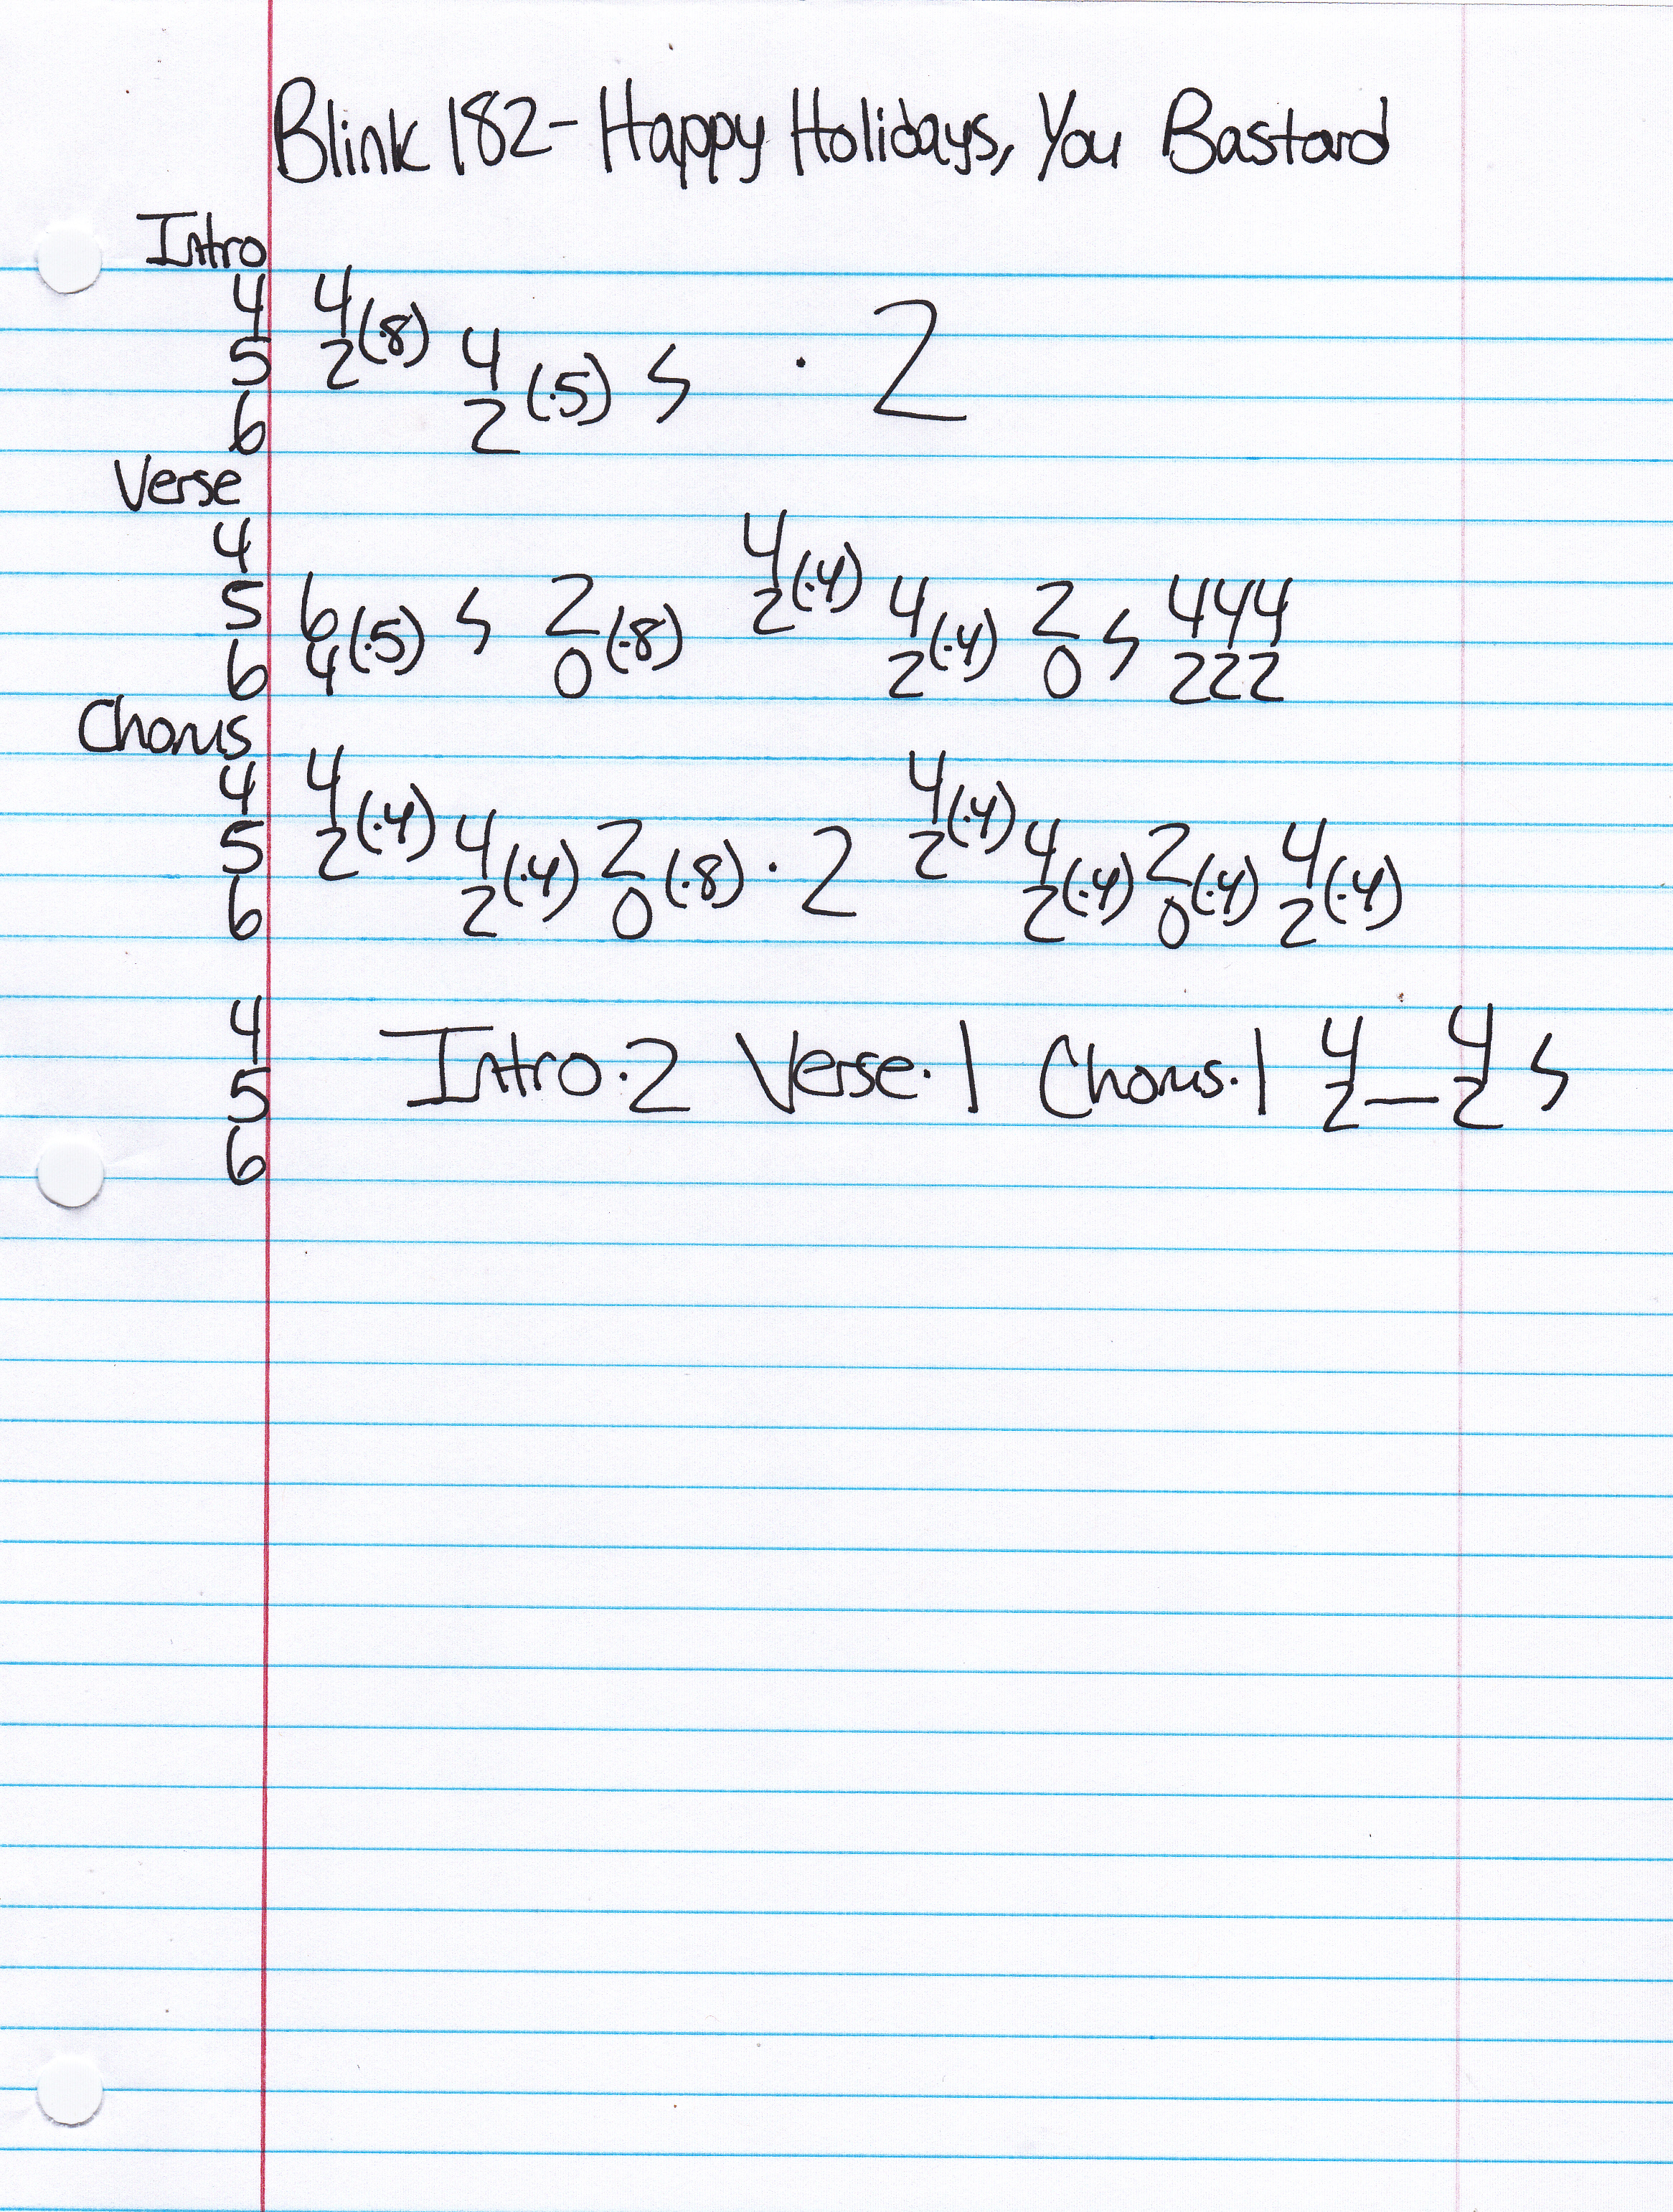 Blink 182- Happy Holidays, You Bastard
Intro
4 4
5 2(·8) 4
6 2 (·5) S · 2
Verse
4 4
5 6 2 2(·4) 4 2 444
6 4(·5) S 0 (·8) 2(·4) 0 S 222
Chorus
4 4 4
5 2(·4) 4 2 2(·4) 4 2 4
6 2(·4) 0 (·8) · 2 2(·4) 0(·4) 2(·4)
4
5 Intro·2 Verse·1 Chorus·1 4 2_4 2 S
6